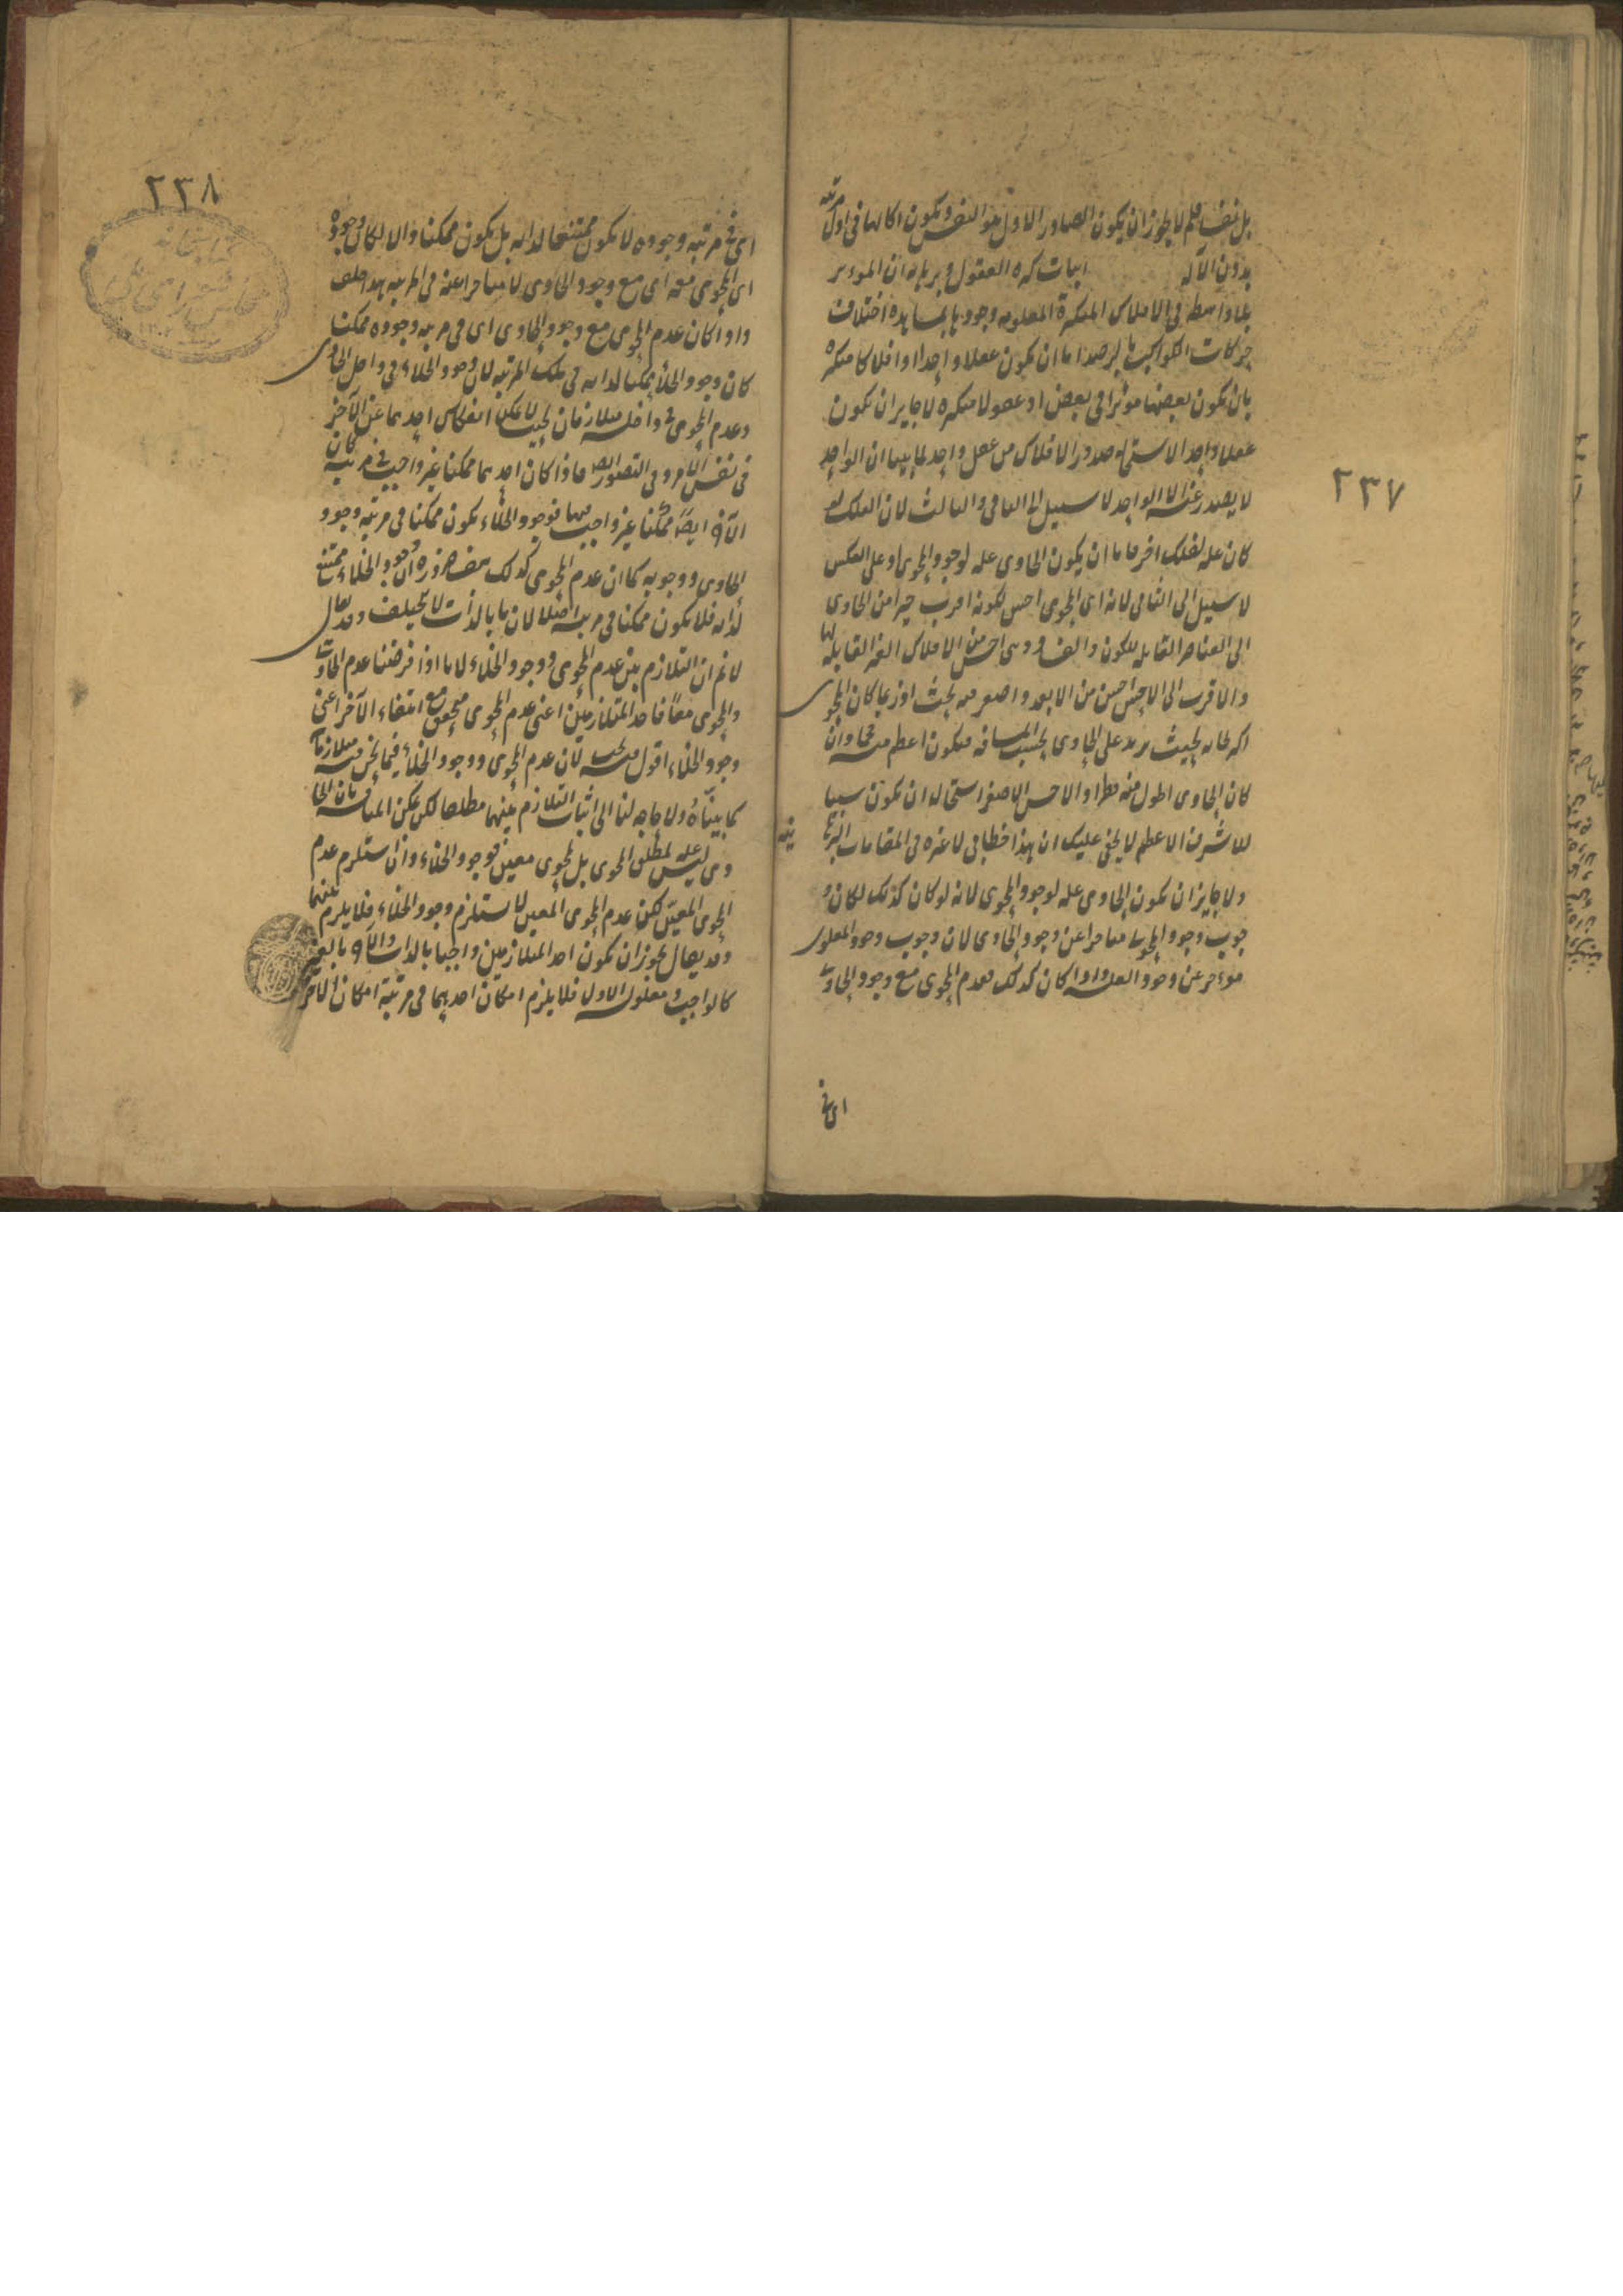 ٢٣٧
بل نقف فلم لا يجوز ان يكون الصادر الاول هو النفس ويكون اكالها فى اول مرتبة
بدون الآلة اثبات كثرة العقول وبرهانه ان الموثر
بلا واسطة فى الافلاك المتكثرة المعلومة وجودها بمشاهدة اختلاف
حركات الكواكب بالرصد اما ان يكون عقلا واحدا او افلاكا متكثرة
بان يكون بعضها موثرا فى بعض او عقولا متكثرة لا جايز ان يكون
عقلا واحدا لاستحالة صدور الافلاك من عقل واحد لما بينا ان الواحد
لا يصدر عنه الا الواحد لا سبيل الى الثانى والثالث لان الفلك لو
كان علة لفلك اخر فاما ان يكون الحاوى علة لوجود المحوى او على العكس
لا سبيل الى الثانى لانه اى المحوى اخس لكونه اقرب حيزا من الحاوى
الى العناصر القابلة للكون والفساد وهى اخس من الافلاك الغير القابلة لها
والاقرب الى الاخس اخس من الابعد واصغر منه بحيث اذ ربما كان المحوى
اكثر ثخانة بحيث يزيد على الحاوى بحسب المسافة فيكون اعظم منه حجما وان
كان الحاوى اطول منه قطرا والاخس الاصغر استحالة ان يكون سببا
للاشرف الاعظم لا يخفى عليك ان هذا خطابى لا عبرة فى المقامات البرهانية
ولا جايز ان يكون الحاوى علة لوجود المحوى لانه لو كان كذلك لكان و
جوب وجود المحوى متاخرا عن وجود الحاوى لان وجوب وجود المعلول
موخر عن وجود العلة واذا كان كذلك فعدم المحوى مع وجود الحاوى
اى فى
٢٣٨
اى فى مرتبة وجوده لا يكون ممتنعا لذاته بل يكون ممكنا والا لكان وجوده
اى المحوى معه اى مع وجود الحاوى لا متاخرا عنه فى المرتبة هذا خلف
واذا كان عدم المحوى مع وجود الحاوى اى فى مرتبة وجوده ممكنا
كان وجود الخلاء ممكنا لذاته فى تلك المرتبة لان وجود الخلاء فى داخل الحاوى
وعدم المحوى فى داخله متلازمان بحيث لا يمكن انفكاك احدهما عن الآخر
فى نفس الامر وفى التصور ايضا فاذا كان احدهما ممكنا غير واجب فى مرتبة كان
الآخر ايضا ممكنا غير واجب فيها فوجود الخلاء يكون ممكنا فى مرتبة وجود
الحاوى ووجوبه كما ان عدم المحوى كذلك هف ضرورة ان وجود الخلاء ممتنع
لذاته فلا يكون ممكنا فى مرتبة اصلا لان ما بالذات لا يتخلف وقد يقال
لا نم ان التلازم بين عدم المحوى ووجود الخلاء لانا اذا فرضنا عدم الحاوى
والمحوى معا فاحد المتلازمين اعنى عدم المحوى متحقق مع انتفاء الآخر اعنى
وجود الخلاء اقول فيه بحث لان عدم المحوى ووجود الخلاء فيما نحن فيه متلازمان
كما بيناه ولا حاجة لنا الى اثبات التلازم بينهما مطلقا لكن يمكن المناقشة بان الحا
وى ليس علة لمطلق المحوى بل لمحوى معين فوجود الخلاء وان استلزم عدم
المحوى المعين لكن عدم المحوى المعين لا يستلزم وجود الخلاء فلا يلزم
وقد يقال يجوز ان يكون احد المتلازمين واجبا بالذات والآخر بالغير
كالواجب ومعلوله الاول فلا يلزم امكان احدهما فى مرتبة امكان الآخر